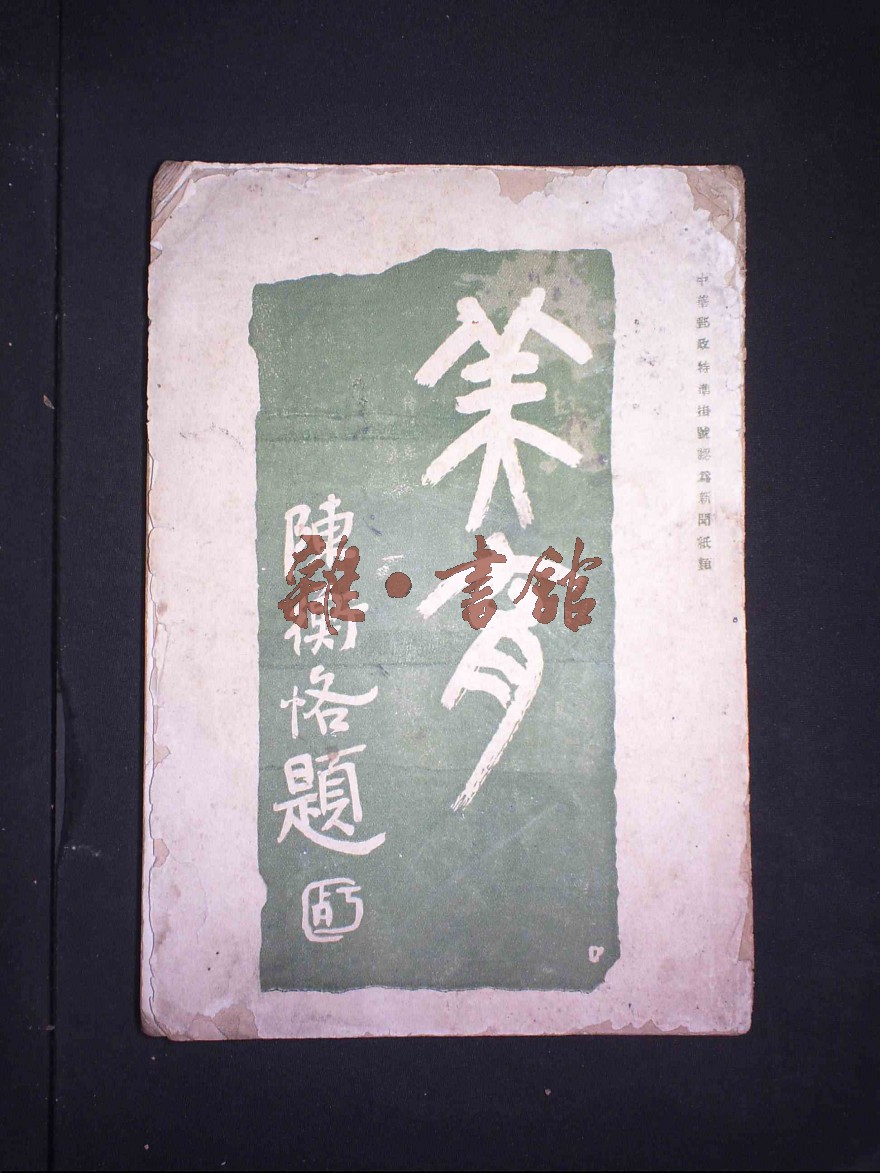 中華郵政特準掛號認爲新聞紙類
美育
陳衡恪題
雜·書館